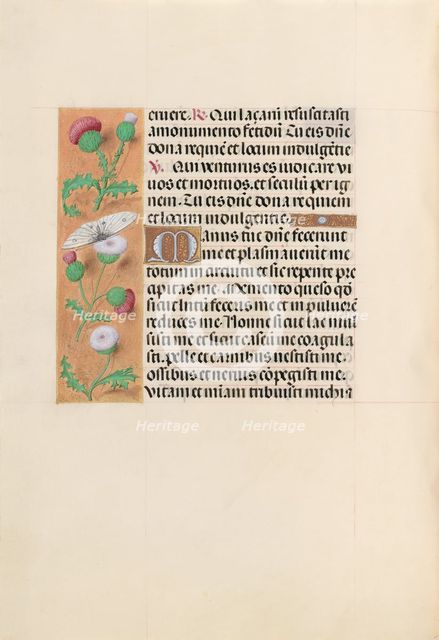 eruere. R. Qui lazarū resuscitasti
a monumento fetidū Tu eis dn̄e
dona requiē et locum indulgētie
V. Qui venturus es iudicare vi
uos et mortuos, et seculū per ig
nem. Tu eis dn̄e dona requiem
et locum indulgentie.
Manus tue dn̄e fecerunt
me et plasmauerūt me
totum in circuitu et sic repente pre
cipitas me. Memento queso qd̄
sicut lutū feceris me et in puluerē
reduces me. Nonne sicut lac mul
sisti me et sicut caseū me coagula
sti. pelle et carnibus uestisti me.
ossibus et neruis cōpegisti me.
vitam et miam̄ tribuisti michi
Heritage
Heritage
Heritage
Heritage
Heritage
Heritage